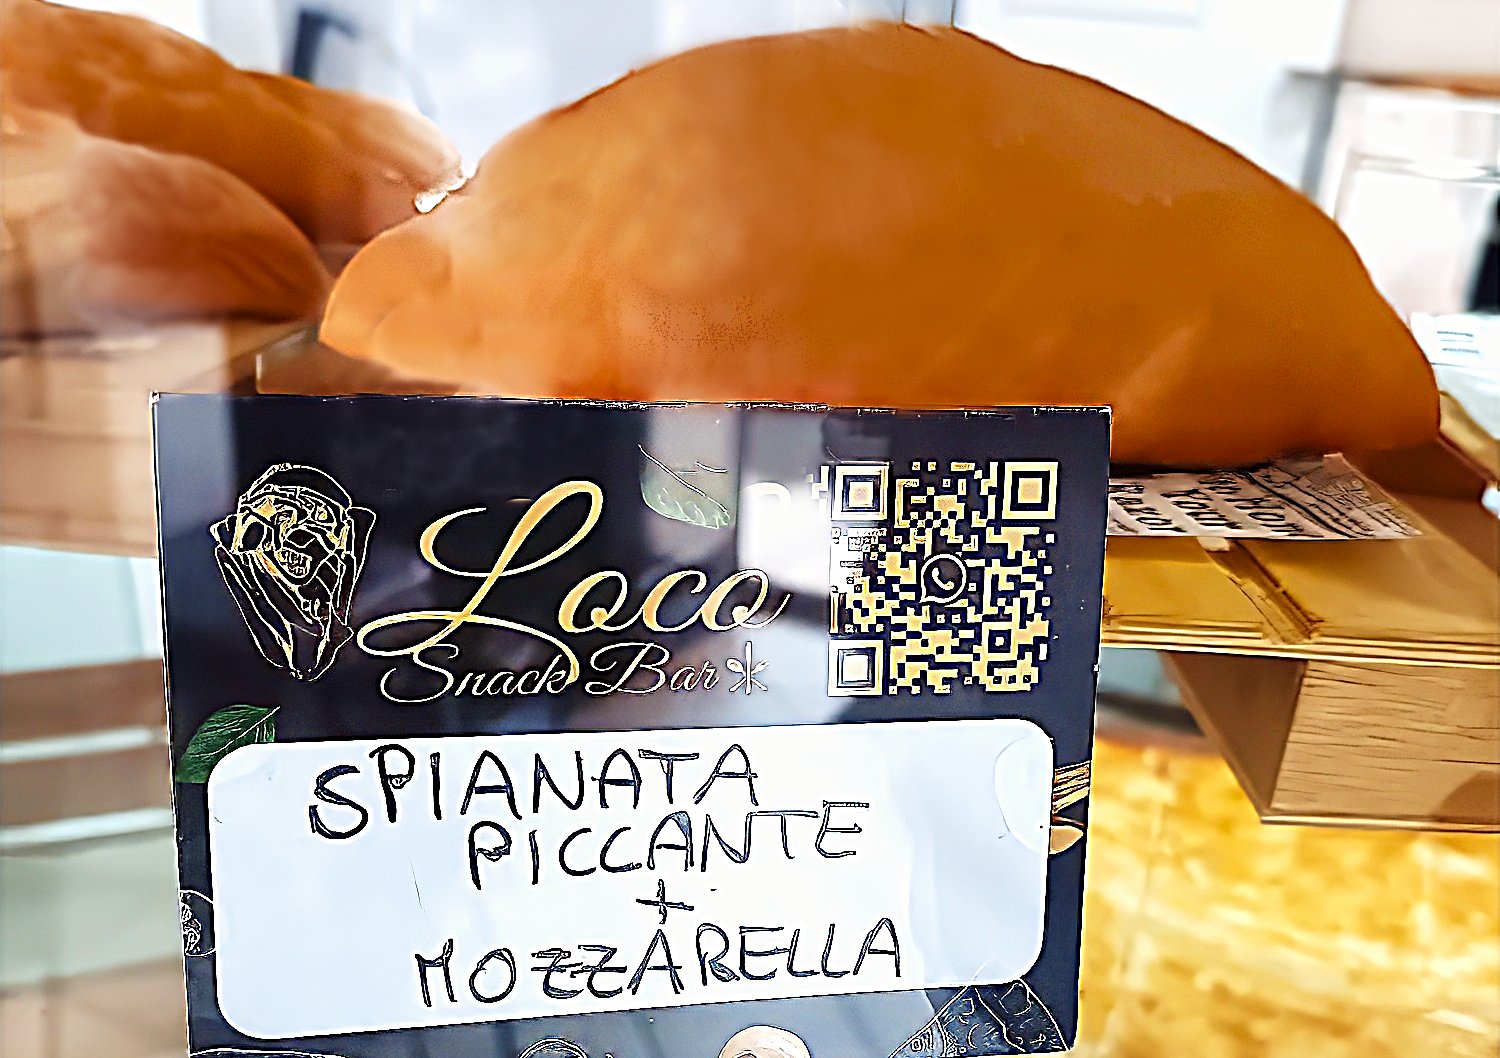 Loco
Snack Bar
SPIANATA
PICCANTE
+
MOZZARELLA